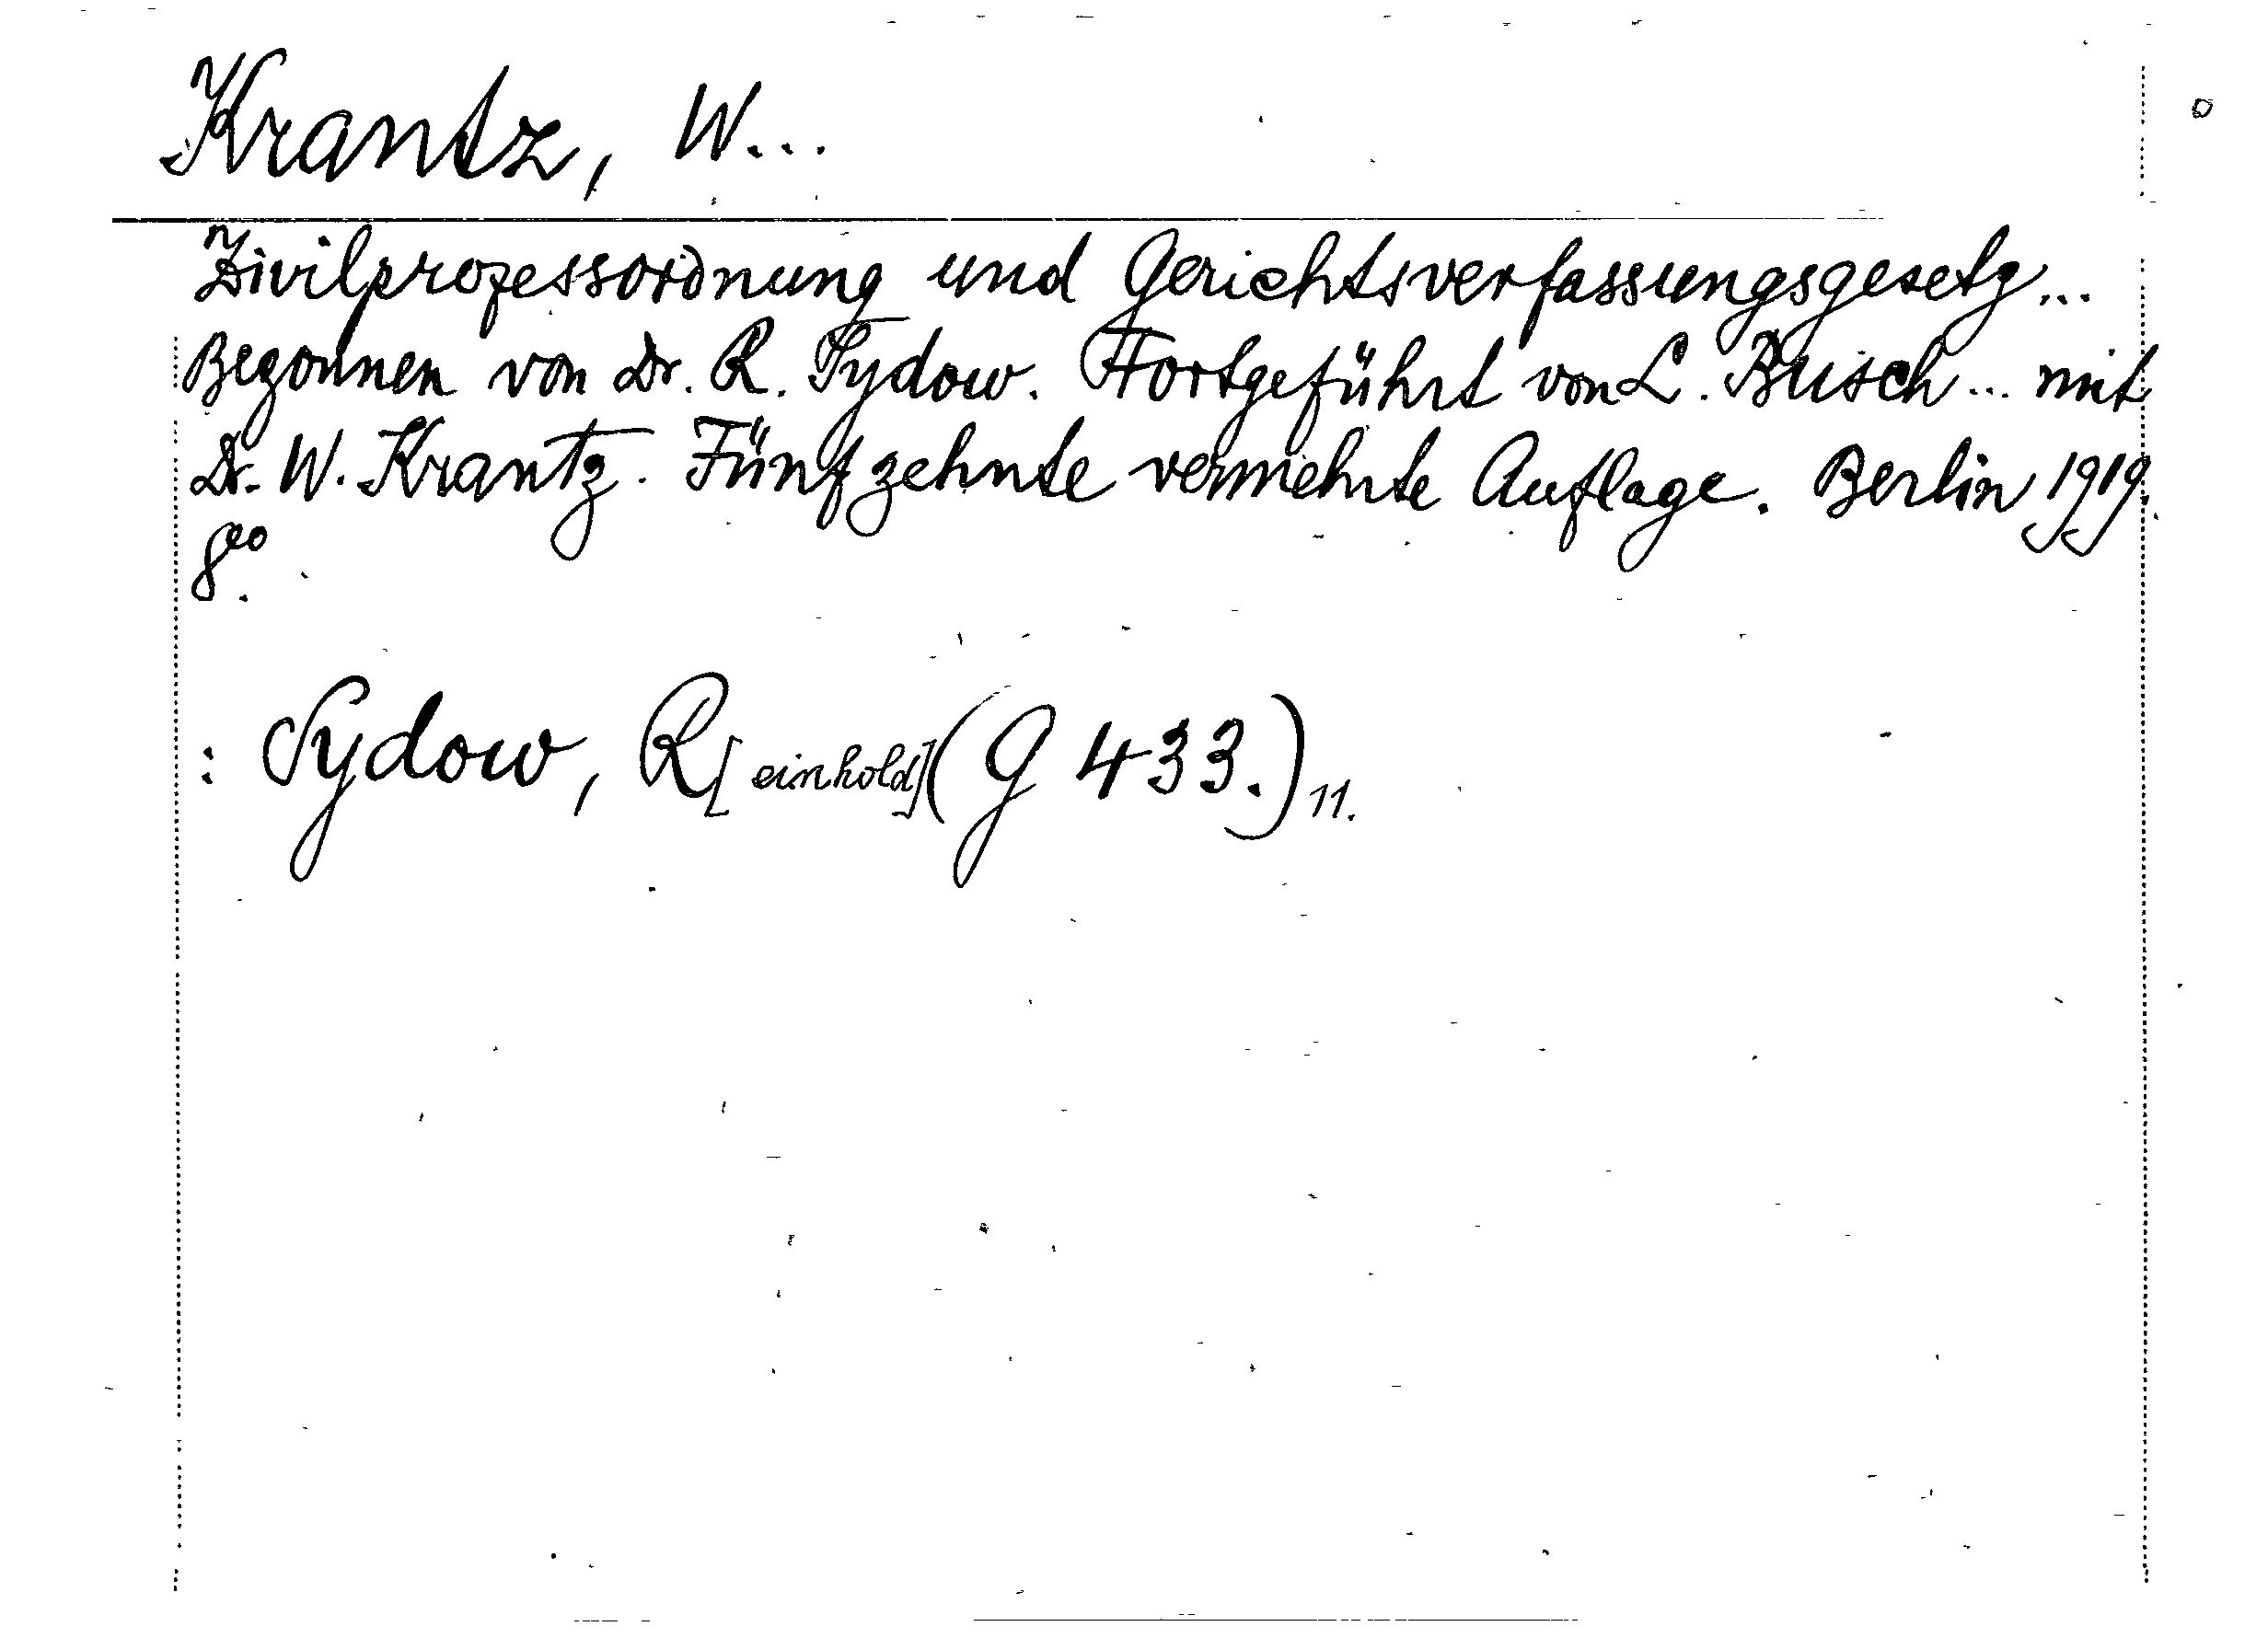 Krantz, W...
Zivilprozessordnung und Gerichtsverfassungsgesetz...
Begonnen von Dr. R. Sydow. Fortgeführt von L. Busch... mit
Dr. W. Krantz. Fünfzehnte vermehrte Auflage. Berlin 1919.
8vo.
: Sydow, R[einhold] (G 433.) 11.